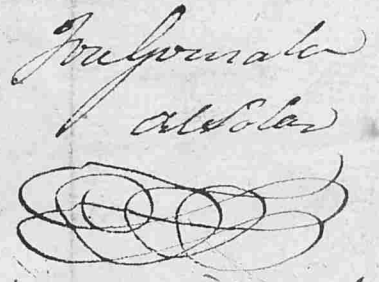 Jose Gonzalez
del Solar